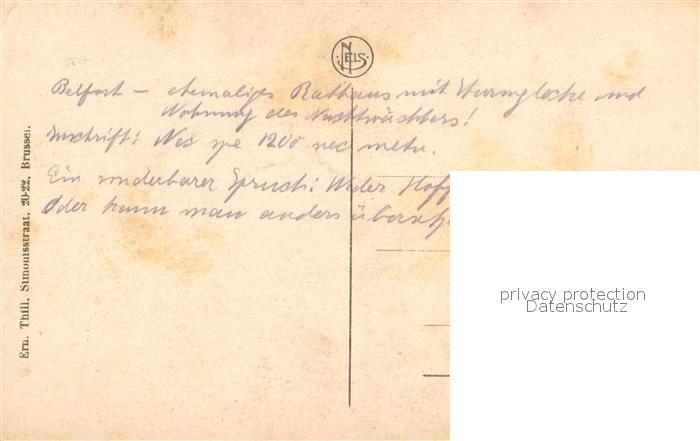 NELS
Belfort – ehemaliges Rathaus mit Sturmglocke und
Wohnung des Nachtwächters!
Inschrift: Nec spe 1200 nec metu.
Ein wunderbarer Spruch: Weder Hoff
Oder kann man anders überset
Ern. Thill, Simonisstraat, 20-22, Brussel.
privacy protection
Datenschutz